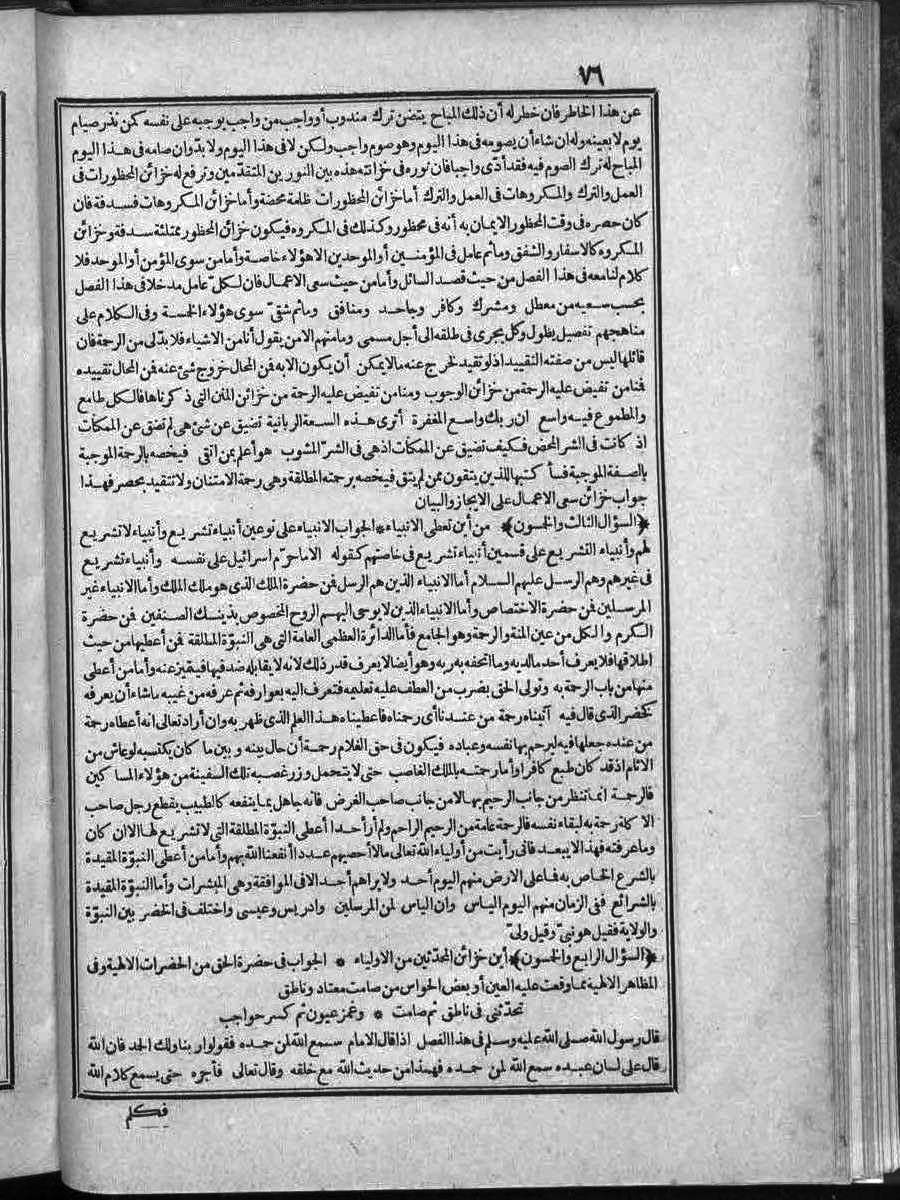 ٧٦
عن هذا الخاطر فان خطر له أن ذلك المباح يتضمن ترك مندوب أو واجب من واجب يوجبه على نفسه كمن نذر صيام
يوم لا بعينه وله ان شاء أن يصومه فى هذا اليوم وهو صوم واجب ولكن لا فى هذا اليوم ولا بد وان صامه فى هذا اليوم
المباح له ترك الصوم فيه فقد أدّى واجبا فان نوره فى خزائنه هذه بين النورين المتقدّمين وترفع له خزائن المحظورات فى
العمل والترك والمكروهات فى العمل والترك أما خزائن المحظورات ظلمة محضة وأما خزائن المكروهات فسدفة فان
كان حصره فى وقت المحظور الايمان به أنه فى محظور وكذلك فى المكروه فيكون خزائن المحظور ممتلئة سدفة وخزائن
المكروه كالاسفار والشفق وماثم عامل فى المؤمنين أو الموحدين الا هؤلاء خاصة وأما من سوى المؤمن أو الموحد فلا
كلام لنا معه فى هذا الفصل من حيث قصد السائل وأما من حيث سعى الاعمال فان لكلّ عامل مدخلا فى هذا الفصل
بحسب سعيه من معطل ومشرك وكافر وجاحد ومنافق وماثم شقىّ سوى هؤلاء الخمسة وفى الكلام على
مناهجهم تفصيل يطول وكل يجرى فى طلقه الى أجل مسمى ومامنهم الا من يقول أنا من الاشياء فلا بدّ لى من الرحمة فان
قائلها ليس من صفته التقييد اذ لو تقيد لخرج عنه ما لا يمكن أن يكون الا به فمن المحال خروج شئ عنه فمن المحال تقييده
فنا من تفيض عليه الرحمة من خزائن الوجوب ومنا من تفيض عليه الرحمة من خزائن المنن التى ذكرناها فالكل طامع
والمطموع فيه واسع ان ربك واسع المغفرة أترى هذه السعة الربانية تضيق عن شئ هى لم تضق عن الممكنات
اذ كانت فى الشر المحض فكيف تضيق عن الممكنات اذ هى فى الشرّ المشوب هو أعلم بمن اتقى فيخصه بالرحمة الموجبة
بالصفة الموجبة فسأكتبها للذين يتقون ممن لم يتق فيخصه برحمته المطلقة وهى رحمة الامتنان ولا تتقيد بحصر فهذا
جواب خزائن سعى الاعمال على الايجاز والبيان
﴿السؤال الثالث والخمسون﴾ من أين تعطى الانبياء * الجواب الانبياء على نوعين أنبياء تشريع وأنبياء لا تشريع
لهم وأنبياء التشريع على قسمين أنبياء تشريع فى خاصتهم كقوله الا ما حرّم اسرائيل على نفسه وأنبياء تشريع
فى غيرهم وهم الرسل عليهم السلام أما الانبياء الذين هم الرسل فمن حضرة الملك الذى هو ملك الملك وأما الانبياء غير
المرسلين فمن حضرة الاختصاص وأما الانبياء الذين لا يوحى اليهم الروح المخصوص بذينك الصنفين فمن حضرة
الكرم والكل من عين المنة والرحمة وهو الجامع فأما الدائرة العظمى العامة التى هى النبوّة المطلقة فمن أعطيها من حيث
اطلاقها فلا يعرف أحد ما لديه وما اتحفه به ربه وهو أيضا لا يعرف قدر ذلك لانه لا يقابله ضد فيها فيتميز عنه وأما من أعطى
منها من باب الرحمة به وتولى الحق بضرب من العطف عليه تعليمه فتعرف اليه بعوارفه ثم عرفه من غيبه ما شاء أن يعرفه
كخضر الذى قال فيه آتيناه رحمة من عندنا أى رحمناه فاعطيناه هذا العلم الذى ظهر به وان أراد تعالى انه أعطاه رحمة
من عنده جعلها فيه ليرحم بها نفسه وعباده فيكون فى حق الغلام رحمة أن حال بينه وبين ما كان يكتسبه لو عاش من
الاثام اذ قد كان طبع كافرا وأما رحمته بالملك الغاصب حتى لا يتحمل وزر غصبه تلك السفينة من هؤلاء المساكين
فالرحمة انما تنظر من جانب الرحيم بها لا من جانب صاحب الغرض فانه جاهل بما ينفعه كالطبيب يقطع رجل صاحب
الاكلة رحمة به لبقاء نفسه فالرحمة عامة من الرحيم الراحم ولم أر أحدا أعطى النبوّة المطلقة التى لا تشريع لها الا ان كان
وما عرفته فهذا لا يبعد فانى رأيت من أولياء الله تعالى ما لا أحصيهم عددا أنفعنا الله بهم وأما من أعطى النبوّة المقيدة
بالشرع الخاص به فما على الارض منهم اليوم أحد ولا يراهم أحد الا فى الموافقة وهى المبشرات وأما النبوّة المقيدة
بالشرائع ففى الزمان منهم اليوم الياس وان الياس لمن المرسلين وادريس وعيسى واختلف فى الخضر بين النبوّة
والولاية فقيل هو نبىّ وقيل ولىّ
﴿السؤال الرابع والخمسون﴾ أين خزائن المحدّثين من الاولياء * الجواب فى حضرة الحق من الحضرات الالهية وفى
المظاهر الالهية مما وقعت عليه العين أو بعض الحواس من صامت معتاد وناطق
تحدّثنى فى ناطق ثم صامت * وغمز عيون ثم كسر حواجب
قال رسول الله صلى الله عليه وسلم فى هذا الفصل اذا قال الامام سمع الله لمن حمده فقولوا ربنا ولك الحمد فان الله
قال على لسان عبده سمع الله لمن حمده فهذا من حديث الله مع خلقه وقال تعالى فأجره حتى يسمع كلام الله
فكلم